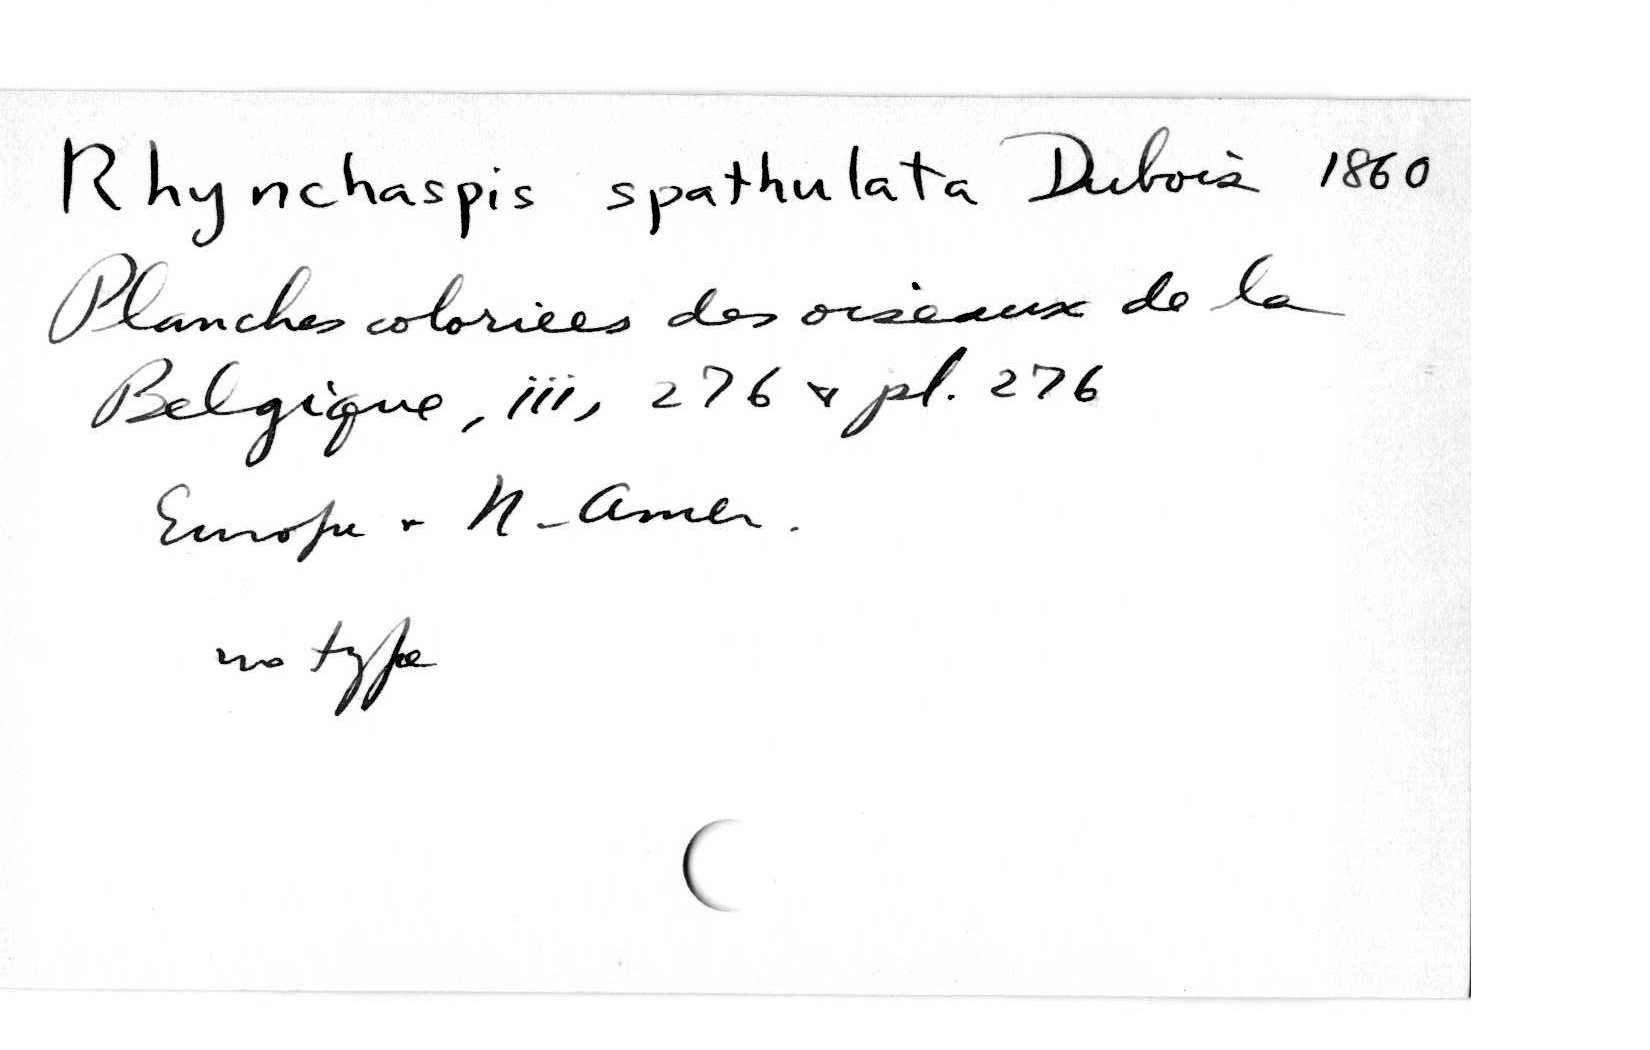 Rhynchaspis spathulata Dubois 1860
Planches coloriees des oiseaux de la
Belgique, iii, 276 & pl. 276
Europe & N-Amer.
no type